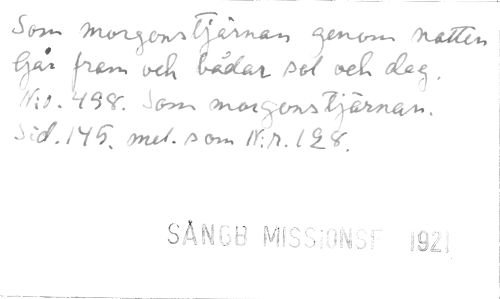 Som morgonstjärnan genom natten
Går fram och bådar sol och dag.
N:o. 498. Som morgonstjärnan.
Sid. 145. mel. som N:r. 128.
SÅNGB MISSIONSF 1921